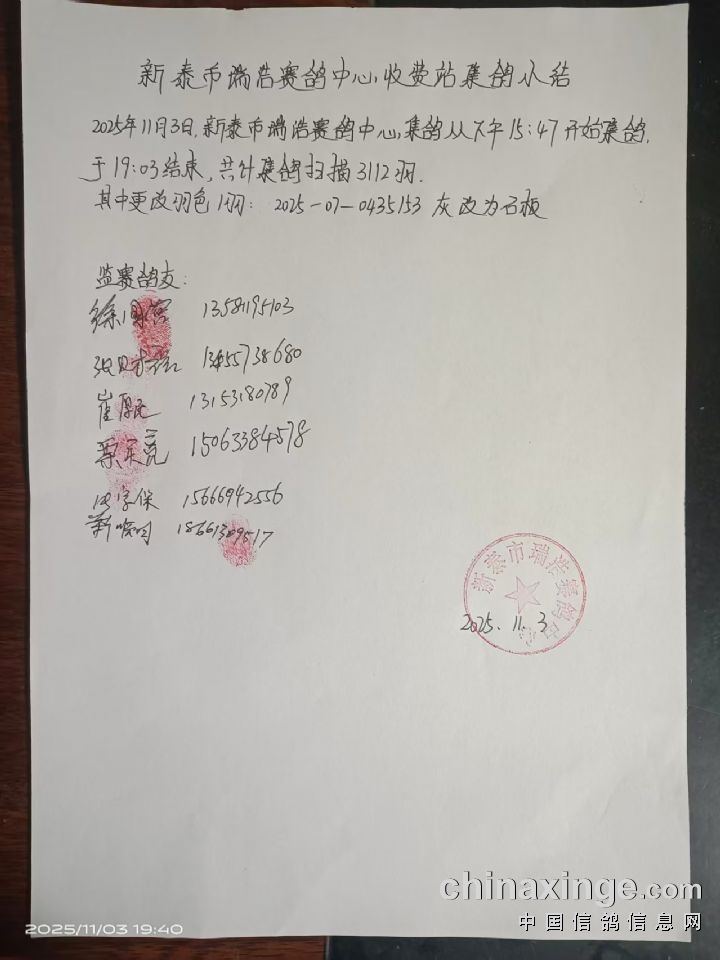 新泰市瑞浩赛鸽中心收费站集鸽小结
2025年11月3日,新泰市瑞浩赛鸽中心,集鸽从下午15:47开始集鸽,
于19:03结束,共计集鸽扫描3112羽.
其中更改羽色1羽: 2025-07-0435153 灰改为石板
监赛鸽友:
徐 13581195103
13455738680
崔 13153180789
15063384578
保 15666942556
靳 18661309517
新泰市瑞浩赛鸽中心
2025.11.3
chinaxinge.com
中国信鸽信息网
2025/11/03 19:40